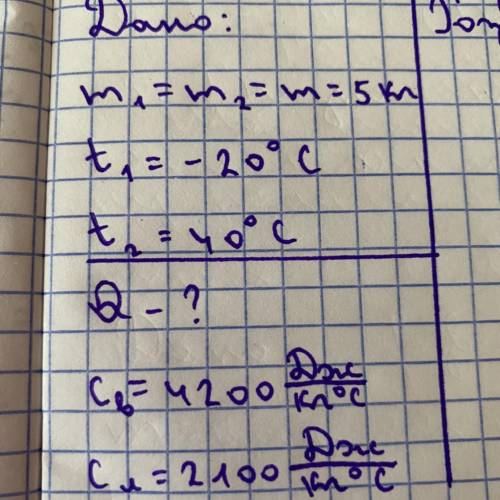 Дано:
m₁ = m₂ = m = 5 кг
t₁ = -20°C
t₂ = 40°C
Q - ?
cв = 4200 Дж/кг°C
cл = 2100 Дж/кг°C